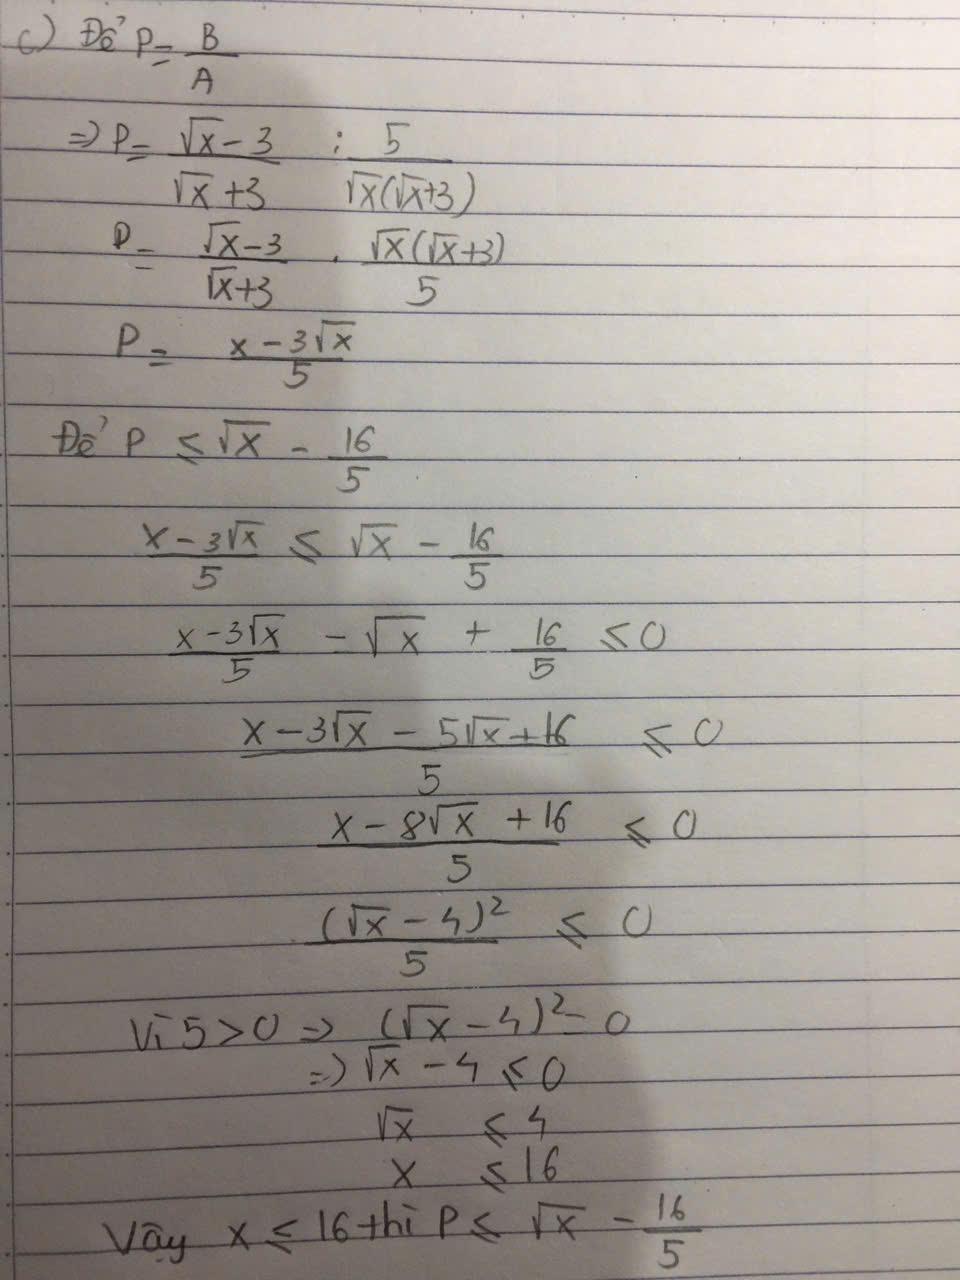 c) Để P = B/A
=> P = (√x - 3)/(√x + 3) : 5/(√x(√x+3))
P = (√x - 3)/(√x+3) . (√x(√x+3))/5
P = (x - 3√x)/5
Để P ≤ √x - 16/5
(x - 3√x)/5 ≤ √x - 16/5
(x - 3√x)/5 - √x + 16/5 ≤ 0
(x - 3√x - 5√x + 16)/5 ≤ 0
(x - 8√x + 16)/5 ≤ 0
(√x - 4)²/5 ≤ 0
Vì 5 > 0 => (√x - 4)² - 0
=> √x - 4 ≤ 0
√x ≤ 4
x ≤ 16
Vậy x ≤ 16 thì P ≤ √x - 16/5